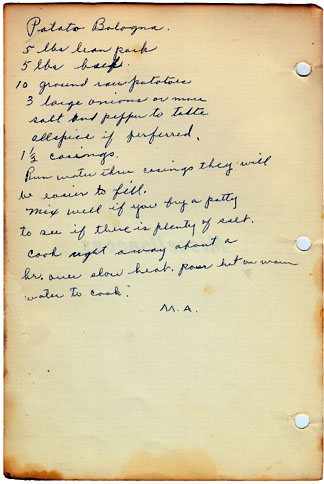 Potato Bologna.
5 lbs lean pork
5 lbs beef.
10 ground raw potatoes
3 large onions or more
salt and pepper to taste
allspice if perferred.
1 1/2 casings.
Run water thru casings they will
be easier to fill.
Mix well if you fry a patty
to see if there is plenty of salt.
Cook right away about a
hr. over slow heat. pour hot or warm
water to cook.
M.A.